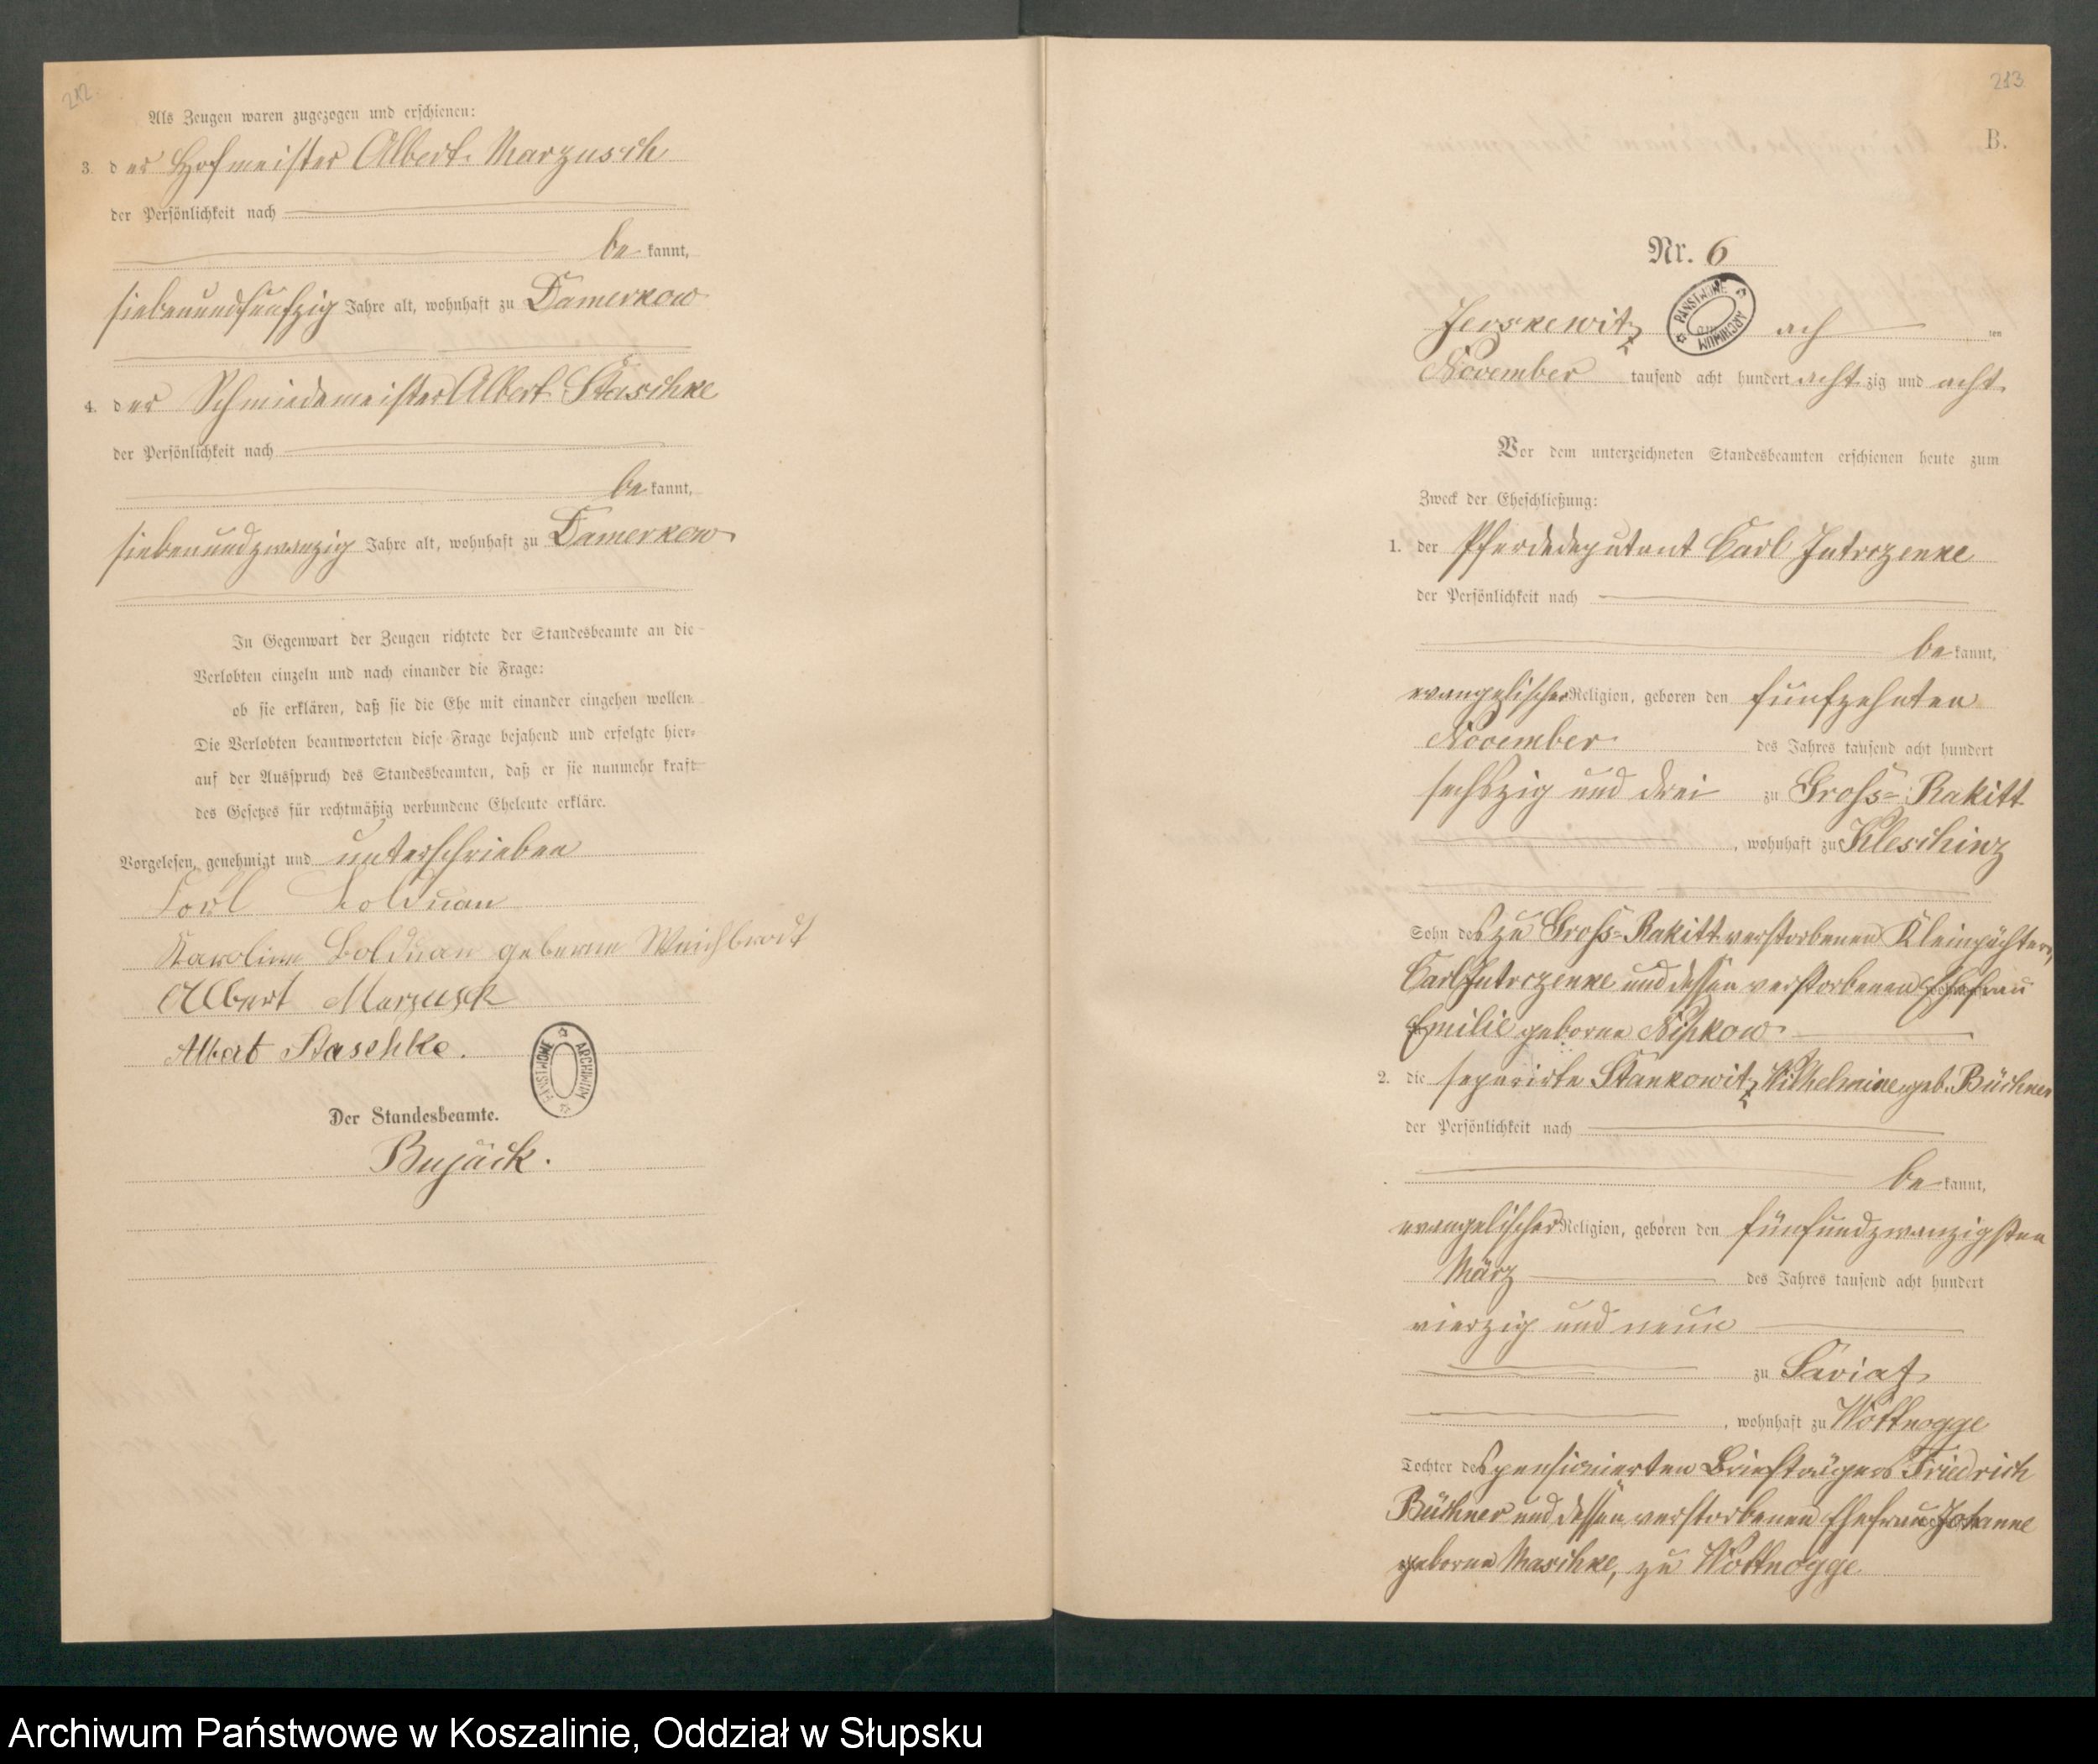 212
Als Zeugen waren zugezogen und erschienen:
3. der Hofmeister Albert Marzusch
der Persönlichkeit nach
be kannt,
siebenundfünfzig Jahre alt, wohnhaft zu Damerkow
4. der Schmiedemeister Albert Staschke
der Persönlichkeit nach
be kannt,
siebenundzwanzig Jahre alt, wohnhaft zu Damerkow
In Gegenwart der Zeugen richtete der Standesbeamte an die
Verlobten einzeln und nach einander die Frage:
ob sie erklären, daß sie die Ehe mit einander eingehen wollen.
Die Verlobten beantworteten diese Frage bejahend und erfolgte hier-
auf der Ausspruch des Standesbeamten, daß er sie nunmehr kraft
des Gesetzes für rechtmäßig verbundene Eheleute erkläre.
Vorgelesen, genehmigt und unterschrieben
Karoline Bolduan geborene Weichbrodt
Albert Marzusch
Albert Staschke.
PANSTWOWE ARCHIWUM
Der Standesbeamte.
Bujäck.
213
B.
Nr. 6
Jerskewitz ach ten
PANSTWOWE ARCHIWUM
November tausend acht hundert acht zig und acht
Vor dem unterzeichneten Standesbeamten erschienen heute zum
Zweck der Eheschließung:
1. der Pferdedeputant Carl Jutrczenke
der Persönlichkeit nach
be kannt,
evangelischer Religion, geboren den fünfzehnten
November des Jahres tausend acht hundert
sechszig und drei zu Gross-Rakitt
, wohnhaft zu Kleschinz
Sohn des zu Gross-Rakitt verstorbenen Kleinpächters,
Carl Jutrczenke und dessen verstorbenen Ehefrau
Emilie geborne Nipkow
2. die separirte Stankowitz, Wilhelmine geb. Büchner
der Persönlichkeit nach
be kannt,
evangelischer Religion, geboren den fünfundzwanzigsten
März des Jahres tausend acht hundert
vierzig und neun
zu Saviat
, wohnhaft zu Wottnogge
Tochter des pensionierten Briefträgers Friedrich
Büchner und dessen verstorbenen Ehefrau Johanne
geborne Maschke, zu Wottnogge
Archiwum Państwowe w Koszalinie, Oddział w Słupsku